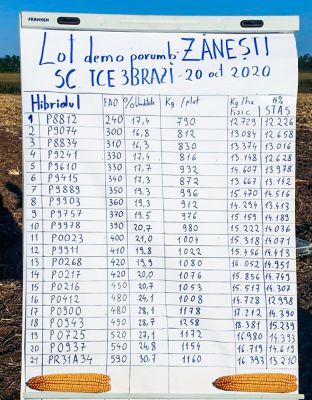 FRANKEN
Lot demo porumb ZĂNEȘTI
SC TCE 3BRAZI - 20 oct 2020
Hibridul FAO %Umiditate Kg/plot Kg/ha fizic 15% STAS
1 P8812 240 17,4 790 12.729 12.226
2 P9074 300 16,8 812 13.084 12.658
3 P8834 310 16,3 830 13.374 13.016
4 P9241 330 17,4 816 13.148 12.628
5 P9610 330 17,7 932 14.607 13.978
6 P9415 340 17,3 872 13.667 13.142
7 P9889 350 19,3 996 15.470 14.516
8 P9903 360 19,3 912 14.294 13.413
9 P9757 370 19,5 976 15.159 14.189
10 P9978 390 20,7 980 15.222 14.036
11 P0023 400 21,0 1004 15.318 14.071
12 P9911 410 19,8 1022 15.456 14.413
13 P0268 420 19,9 1080 16.052 14.951
14 P0217 420 20,0 1076 15.856 14.749
15 P0216 450 20,7 1053 15.517 14.307
16 P0412 480 24,1 1008 14.728 12.998
17 P0900 480 28,1 1178 17.212 14.390
18 P0943 490 28,7 1258 18.381 15.239
19 P0725 520 27,1 1172 16.980 14.393
20 P0937 540 24,8 1154 16.719 14.613
21 PR31A34 590 30,7 1160 16.393 13.210